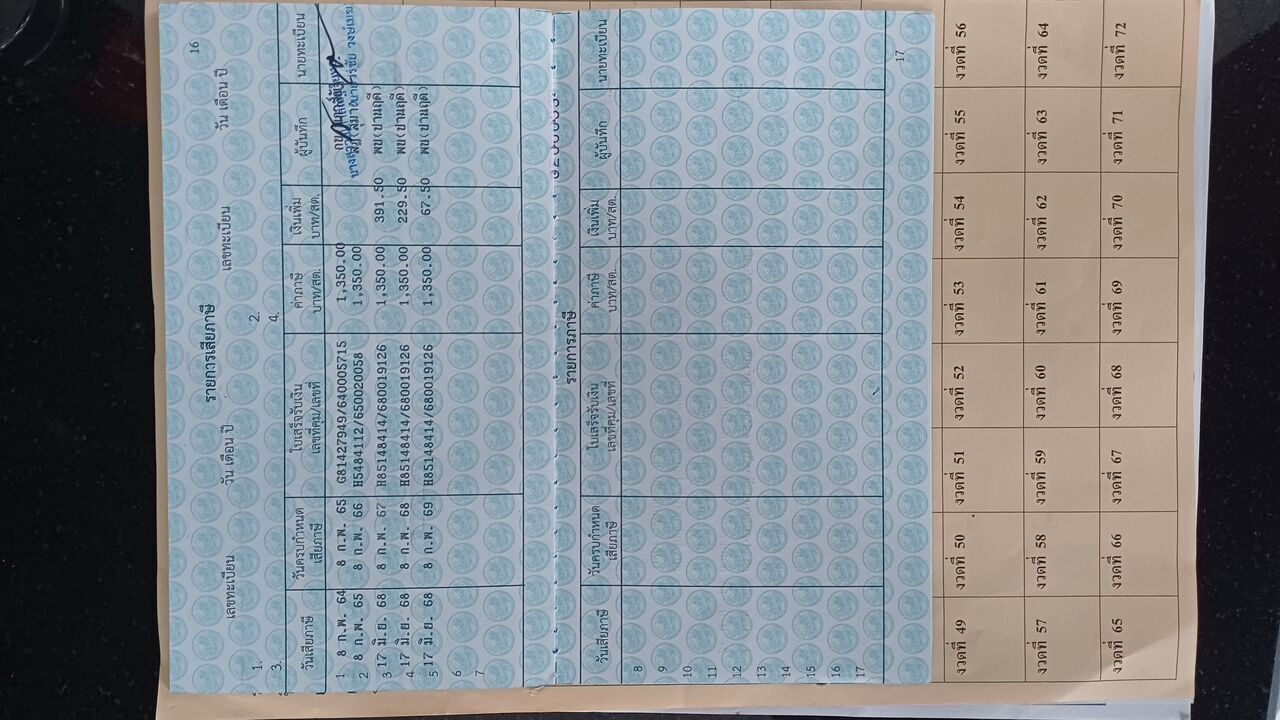 16
รายการเสียภาษี
เลขทะเบียน วัน เดือน ปี เลขทะเบียน วัน เดือน ปี
1. 2.
3. 4.
วันเสียภาษี วันครบกำหนดเสียภาษี ใบเสร็จรับเงิน เลขที่คุม/เลขที่ ค่าภาษี บาท/สต. เงินเพิ่ม บาท/สต. ผู้บันทึก นายทะเบียน
1 8 ก.พ. 64 8 ก.พ. 65 G81427949/640005715 1,350.00
2 8 ก.พ. 65 8 ก.พ. 66 H5484112/6500020058 1,350.00
3 17 มิ.ย. 68 8 ก.พ. 67 H85148414/680019126 1,350.00 391.50 พข(ปานฤดี)
4 17 มิ.ย. 68 8 ก.พ. 68 H85148414/680019126 1,350.00 229.50 พข(ปานฤดี)
5 17 มิ.ย. 68 8 ก.พ. 69 H85148414/680019126 1,350.00 67.50 พข(ปานฤดี)
6
7
รายการภาษี
วันเสียภาษี วันครบกำหนดเสียภาษี ใบเสร็จรับเงิน เลขที่คุม/เลขที่ ค่าภาษี บาท/สต. เงินเพิ่ม บาท/สต. ผู้บันทึก นายทะเบียน
8
9
10
11
12
13
14
15
16
17
17
งวดที่ 49 งวดที่ 50 งวดที่ 51 งวดที่ 52 งวดที่ 53 งวดที่ 54 งวดที่ 55 งวดที่ 56
งวดที่ 57 งวดที่ 58 งวดที่ 59 งวดที่ 60 งวดที่ 61 งวดที่ 62 งวดที่ 63 งวดที่ 64
งวดที่ 65 งวดที่ 66 งวดที่ 67 งวดที่ 68 งวดที่ 69 งวดที่ 70 งวดที่ 71 งวดที่ 72